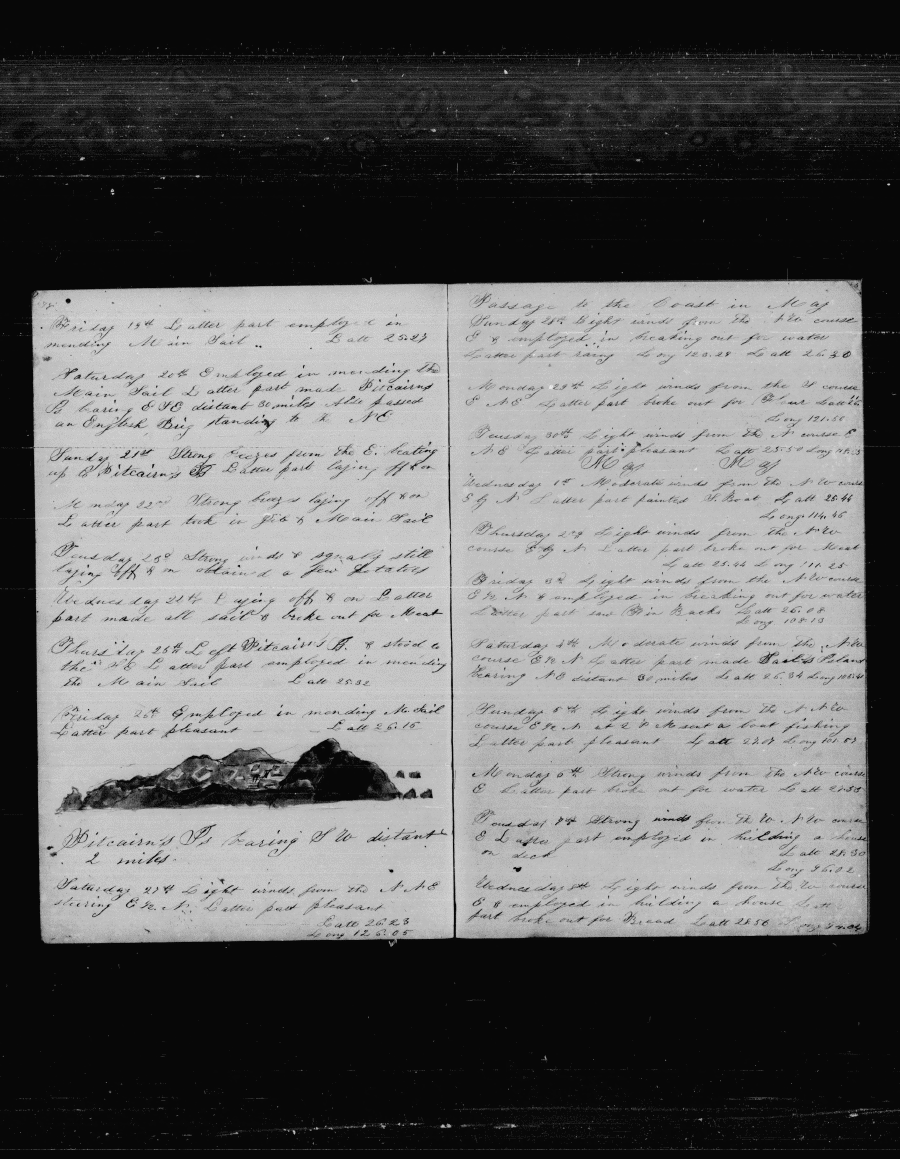 Friday 19th Latter part employed in
mending Main Sail " Latt 25.27
Saturday 20th Employed in mending the
Main Sail Latter part made Pitcairns
Is baring E S E distant 30 miles Also passed
an English Brig standing to the N E
Sunday 21st Strong breezes from the E. beating
up to Pitcairns Is Latter part laying off & on
Monday 22nd Strong breezes laying off & on
Latter part took in Jib & Main Sail
Tuesday 23d Strong winds & squaly still
laying off & on obtained a few Potatoes
Wednesday 24th Laying off & on Latter
part made all sail & broke out for Meat
Thursday 25th Left Pitcairn's I. & stood to
the N E Latter part employed in mending
the Main Sail Latt 25.32
Friday 26th Employed in mending M. Sail
Latter part pleasant Latt 26.15
Pitcairn's Is baring S W distant
2 miles.
Saturday 27th Light winds from the N. N E
stering E by N. Latter part pleasant
Latt 26.23
Long 126.05
Passage to the Coast in May
Sunday 28th Light winds from the N W course
E & employed in breaking out for water
Latter part rainy Long 123.29 Latt 26.30
Monday 29th Light winds from the N course
E N E Latter part broke out for Flour Latt
Long 121.58
Tuesday 30th Light winds from the N course E
N E Latter part pleasant Latt 25.50 Long
May May
Wednesday 1st Moderate winds from the N W course
E by N. Latter part painted S. Boat Latt 25.44
Long 114.46
Thursday 2nd Light winds from the N W
course E by N Latter part broke out for Meat
Latt 25.44 Long 111.25
Friday 3d Light winds from the N W course
E by N & employed in breaking out for water
Latter part saw Fin Backs Latt 26.08
Long 108.13
Saturday 4th Moderate winds from the N W
course E by N Latter part made Easter Island
bearing N E distant 30 miles Latt 26.34 Long
Sunday 5th Light winds from the N N W
course E by N at 2 P M sent a boat fishing
Latter part pleasant Latt 27.07 Long 101.57
Monday 6th Strong winds from the N W course
E Latter part broke out for water Latt 27.53
Tuesday 7th Strong winds from the W N W course
E Latter part employed in building a house
on deck Latt 28.30
Long 96.02
Wednesday 8th Light winds from the W course
E & employed in building a house Latt
part broke out for Bread Latt 28.56 Long